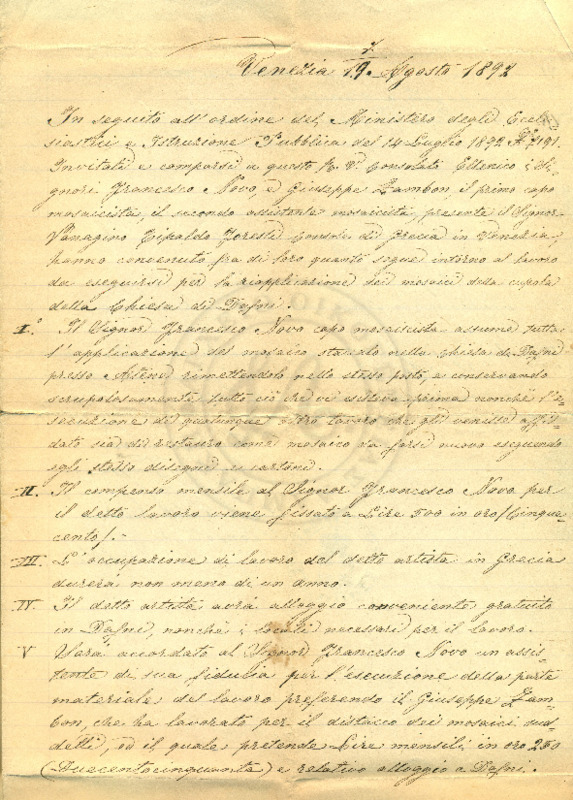 Venezia 19. Agosto 1892
In seguito all'ordine del Ministero degli Eccle-
siastici e Istruzione Pubblica del 14 Luglio 1892 No 7191.
Invitati e comparsi a questo Consolato Ellenico i Si-
gnori Francesco Novo e Giuseppe Zambon, il primo capo
mosaicista, il secondo assistente mosaicista, presente il Signor
Tipaldo Foresti Console di Grecia in Venezia,
hanno convenuto fra di loro quanto segue intorno al lavoro
da eseguirsi per la riapplicazione dei mosaici della cupola
della Chiesa di Dafni.
I° Il Signor Francesco Novo capo mosaicista assume tutta
l'applicazione del mosaico staccato nella chiesa di Dafni
presso Atene rimettendolo nello stesso posto, e conservando
scrupolosamente tutto ciò che vi esisteva prima nonchè l'e-
secuzione di qualunque altro lavoro che gli venisse affi-
dato sia di restauro come mosaico da farsi nuovo eseguendo
egli stesso disegni e cartoni.
II. Il compenso mensile al Signor Francesco Novo per
il detto lavoro viene fissato a Lire 500 in oro (Cinque-
cento).-
III. L'occupazione di lavoro del detto artista in Grecia
durerà non meno di un anno.
IV. Il detto artista avrà alloggio conveniente gratuito
in Dafni, nonchè i locali necessari per il lavoro.
V Sarà accordato al Signor Francesco Novo un assis-
tente di sua fiducia per l'esecuzione della parte
materiale del lavoro preferendo il Giuseppe Zam-
bon, che ha lavorato per il distacco dei mosaici sud-
detti, ed il quale pretende Lire mensili in oro 250
(Duecentocinquanta) e relativo alloggio a Dafni.